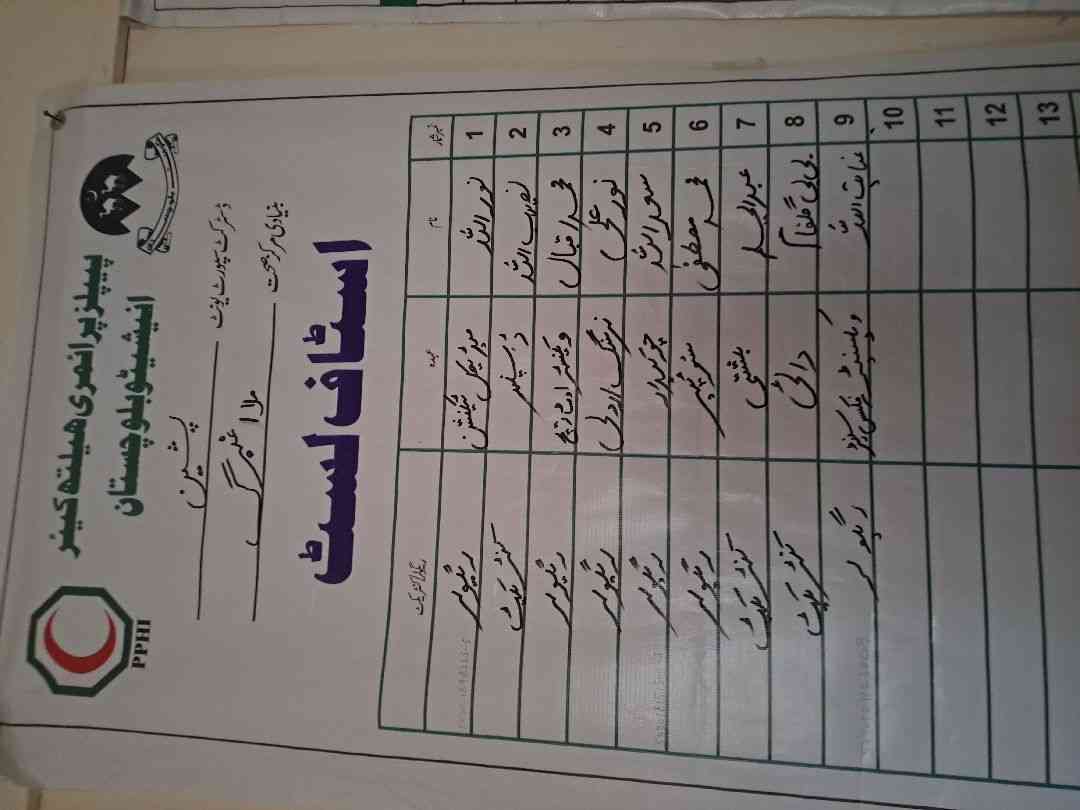 پیپلز پرائمری ہیلتھ کیئر
انیشیٹو بلوچستان
PPHI
ڈسٹرکٹ سپورٹ یونٹ پشین
بنیادی مرکز صحت ملا عنبر
اسٹاف لسٹ
نمبر شمار نام عہدہ ریگولر/کنٹریکٹ
1 نور اللہ میڈیکل ٹیکنیشن ریگولر
2 نصیب اللہ ڈسپنسر کنٹریکٹ
3 محمد اقبال ریگولر
4 نور علی نرسنگ اردلی ریگولر
5 سعد اللہ چوکیدار ریگولر
6 محمد مصطفی سوئیپر ریگولر
7 بہشتی کنٹریکٹ
8 بی بی گلفام دائی کنٹریکٹ
9 عنایت اللہ ریگولر
10
11
12
13